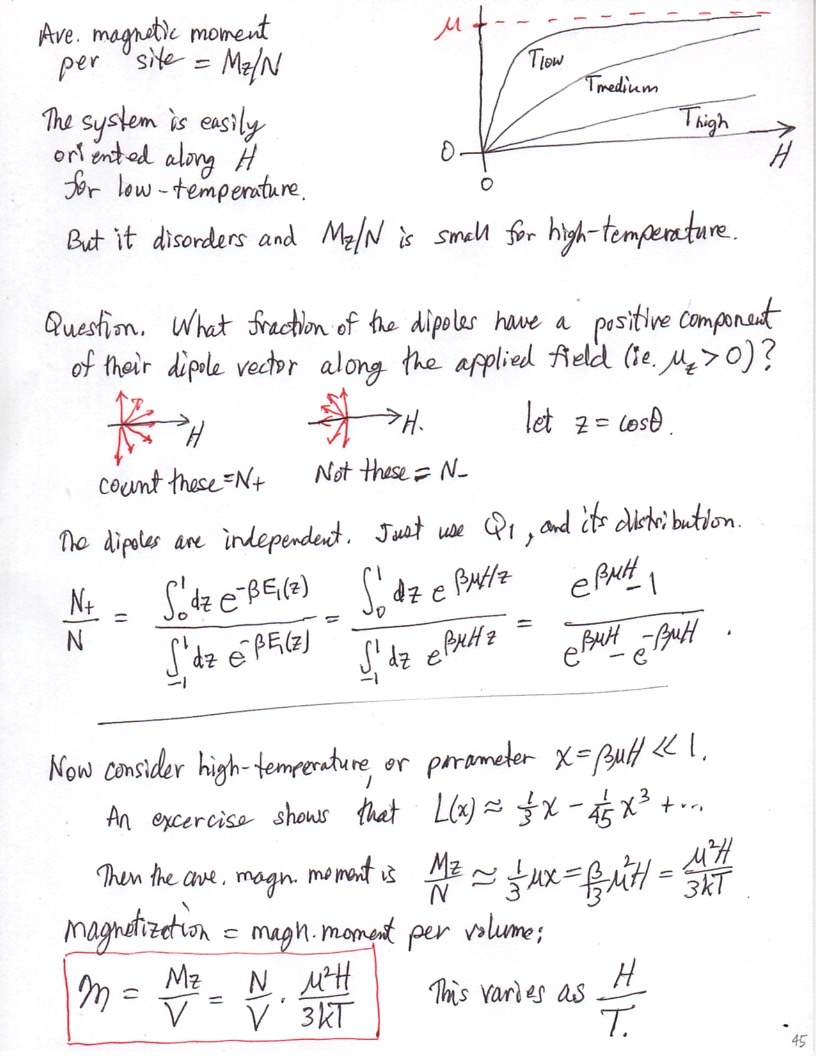 Ave. magnetic moment
per site = Mz/N
μ
Tlow
Tmedium
Thigh
0
0
H
The system is easily
oriented along H
for low-temperature.
But it disorders and Mz/N is small for high-temperature.
Question. What fraction of the dipoles have a positive component
of their dipole vector along the applied field (ie. μz > 0)?
H
H.
let z = cosθ.
count these = N+
Not these = N-
The dipoles are independent. Just use Q1, and its distribution.
N+/N = ∫₀¹ dz e^{-βE₁(z)} / ∫₋₁¹ dz e^{-βE₁(z)} = ∫₀¹ dz e^{βμHz} / ∫₋₁¹ dz e^{βμHz} = (e^{βμH} - 1) / (e^{βμH} - e^{-βμH}) .
Now consider high-temperature, or parameter x = βμH ≪ 1.
An excercise shows that L(x) ≈ 1/3 x - 1/45 x³ + ...
Then the ave. magn. moment is Mz/N ≈ 1/3 μx = β/3 μ²H = μ²H/3kT
magnetization = magn. moment per volume;
m = Mz/V = N/V · μ²H/3kT
This varies as H/T.
45